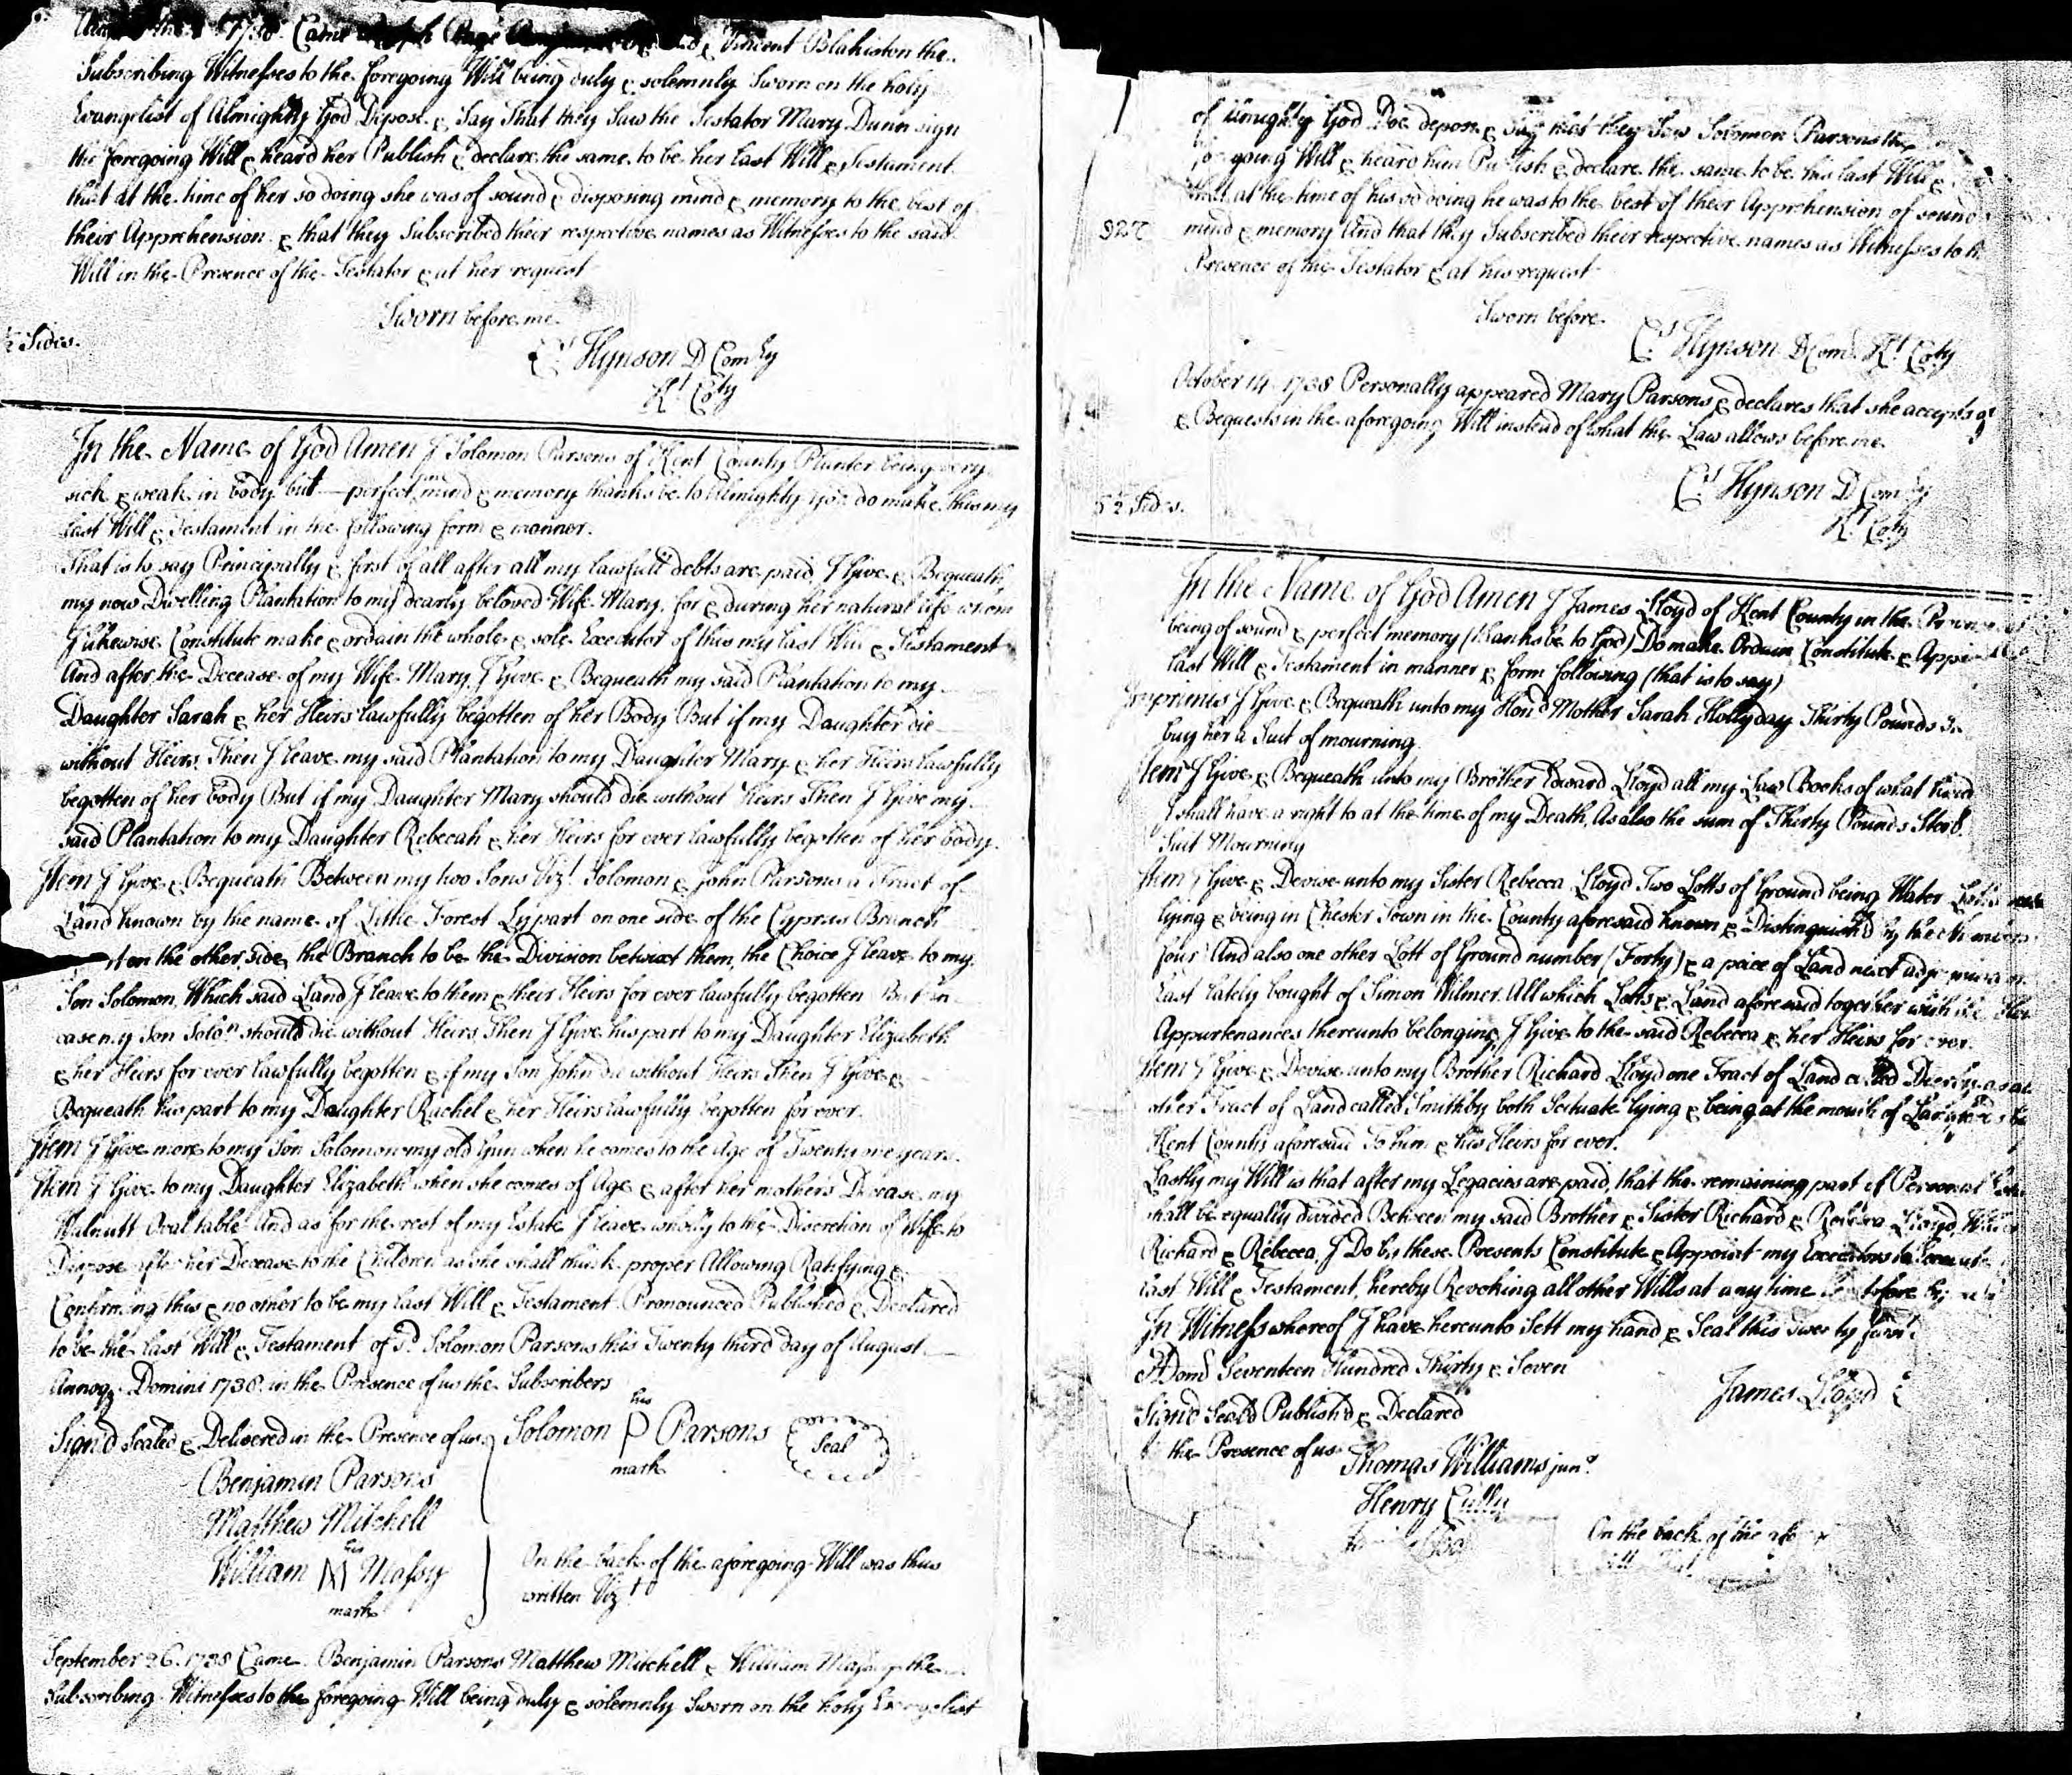 1738 Came Vincent Blakiston the
Subscribing Witnesses to the foregoing Will being duly & solemnly Sworn on the holy
Evangelist of Almighty God Depose & Say That they Saw the Testator Mary Dunn sign
the foregoing Will & heard her Publish & declare the same to be her last Will & Testament
that at the time of her so doing she was of sound & disposing mind & memory to the best of
their Apprehension & that they Subscribed their respective names as Witnesses to the said
Will in the Presence of the Testator & at her request
Sworn before me
Sides.
Hynson D Comry
Kt Coty
In the Name of God Amen I Solomon Parsons of Kent County Planter being very
sick & weak in body but perfect mind & memory thanks be to Almighty God do make this my
last Will & Testament in the following form & manner.
That is to say Principally & first of all after all my lawfull debts are paid, I Give & Bequeath
my now Dwelling Plantation to my dearly beloved Wife Mary, for & during her natural life whom
I likewise Constitute make & ordain the whole & sole Executor of this my last Will & Testament
And after the Decease of my Wife Mary, I Give & Bequeath my said Plantation to my
Daughter Sarah & her Heirs lawfully begotten of her Body But if my Daughter die
without Heirs, Then I leave my said Plantation to my Daughter Mary & her Heirs lawfully
begotten of her body But if my Daughter Mary should die without Heirs Then I Give my
said Plantation to my Daughter Rebecah & her Heirs for ever lawfully begotten of her body.
Item I Give & Bequeath Between my two Sons Vizt. Solomon & John Parsons a Tract of
Land known by the name of Little Forest Ly part on one side of the Cyprus Branch
on the other side, the Branch to be the Division betwixt them, the Choice I leave to my
Son Solomon, Which said Land I leave to them & their Heirs for ever lawfully begotten But in
case my Son Solon should die without Heirs, Then I Give his part to my Daughter Elizabeth
& her Heirs for ever lawfully begotten & if my Son John die without Heirs Then I Give &
Bequeath his part to my Daughter Rachel & her Heirs lawfully begotten for ever.
Item I Give more to my Son Solomon my old Gun when he comes to the Age of Twenty one years.
Item I Give to my Daughter Elizabeth when she comes of Age & after her mothers Decease my
Walnutt Oval table And as for the rest of my Estate I leave wholly to the Discretion of Wife to
Dispose after her Decease to the Children as she shall think proper Allowing Ratifying &
Confirming this & no other to be my last Will & Testament. Pronounced Published & Declared
to be the last Will & Testament of Sd. Solomon Parsons this Twenty third day of August
Annoq. Domini 1738. in the Presence of us the Subscribers
Sign'd Sealed & Delivered in the Presence of us Solomon his P mark Parsons Seal
Benjamin Parsons
Matthew Mitchell
William his M mark Massy
On the back of the aforegoing Will was thus
written Vizt
September 26. 1738 Came Benjamin Parsons Matthew Mitchell & William Massy the
Subscribing Witnesses to the foregoing Will being duly & solemnly Sworn on the holy Evangelist
of Almighty God Doe depose & Say that they Saw Solomon Parsons the
going Will & heard him Publish & declare the same to be his last Will &
that at the time of his so doing he was to the best of their Apprehension of sound
mind & memory And that they Subscribed their respective names as Witnesses to
Presence of the Testator & at his request
Sworn before
Hynson D Com. Kt Coty
October 14. 1738 Personally appeared Mary Parsons & declares that she accepts of
& Bequests in the aforegoing Will instead of what the Law allows before me
Hynson D Comry
Kt Coty
5½ Sides.
In the Name of God Amen I James Lloyd of Kent County in the
being of sound & perfect memory (thanks be to God) Do make Ordain Constitute &
last Will & Testament in manner & form following (that is to say)
Imprimis I Give & Bequeath unto my Hond Mother Sarah Hollyday Thirty Pounds
buy her a Suit of mourning.
Item I Give & Bequeath unto my Brother Edward Lloyd all my Law Books of what kind
I shall have a right to at the time of my Death, As also the sum of Thirty Pounds
Suit Mourning
Item I Give & Devise unto my Sister Rebecca Lloyd Two Lotts of Ground being Water
lying & being in Chester Town in the County aforesaid known & Distinguish'd by the
four And also one other Lott of Ground number (Forty) & a peice of Land next
East lately bought of Simon Wilmer. All which Lotts & Land aforesaid together with
Appurtenances thereunto belonging, I Give to the said Rebecca & her Heirs for ever.
Item I Give & Devise unto my Brother Richard Lloyd one Tract of Land called
other Tract of Land called Smithby both Scituate lying & being at the mouth of
Kent County aforesaid To him & his Heirs for ever.
Lastly my Will is that after my Legacies are paid, that the remaining part of Personal
shall be equally divided Between my said Brother & Sister Richard & Rebecca Lloyd,
Richard & Rebecca, I Do by these Presents Constitute & Appoint my Executors to
last Will & Testament, hereby Revoking all other Wills at any time
In Witness whereof I have hereunto Sett my hand & Seal this
A Dom Seventeen Hundred Thirty & Seven
James Lloyd
Signd Seald Publish'd & Declared
the Presence of us
Thomas Williams junr
Henry Cully
On the back of the